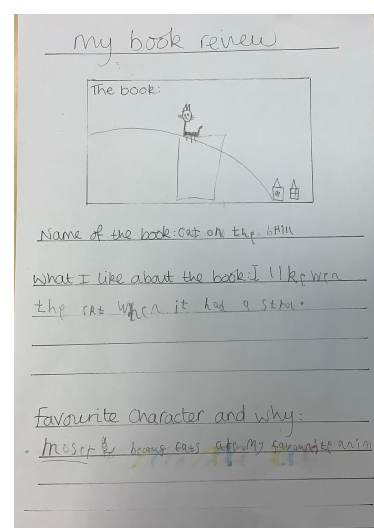 my book review
The book:
Name of the book: cat on the. bHill
What I like about the book: I like wen
the cat when it had a
favourite Character and why:
because cats are my favourite anim